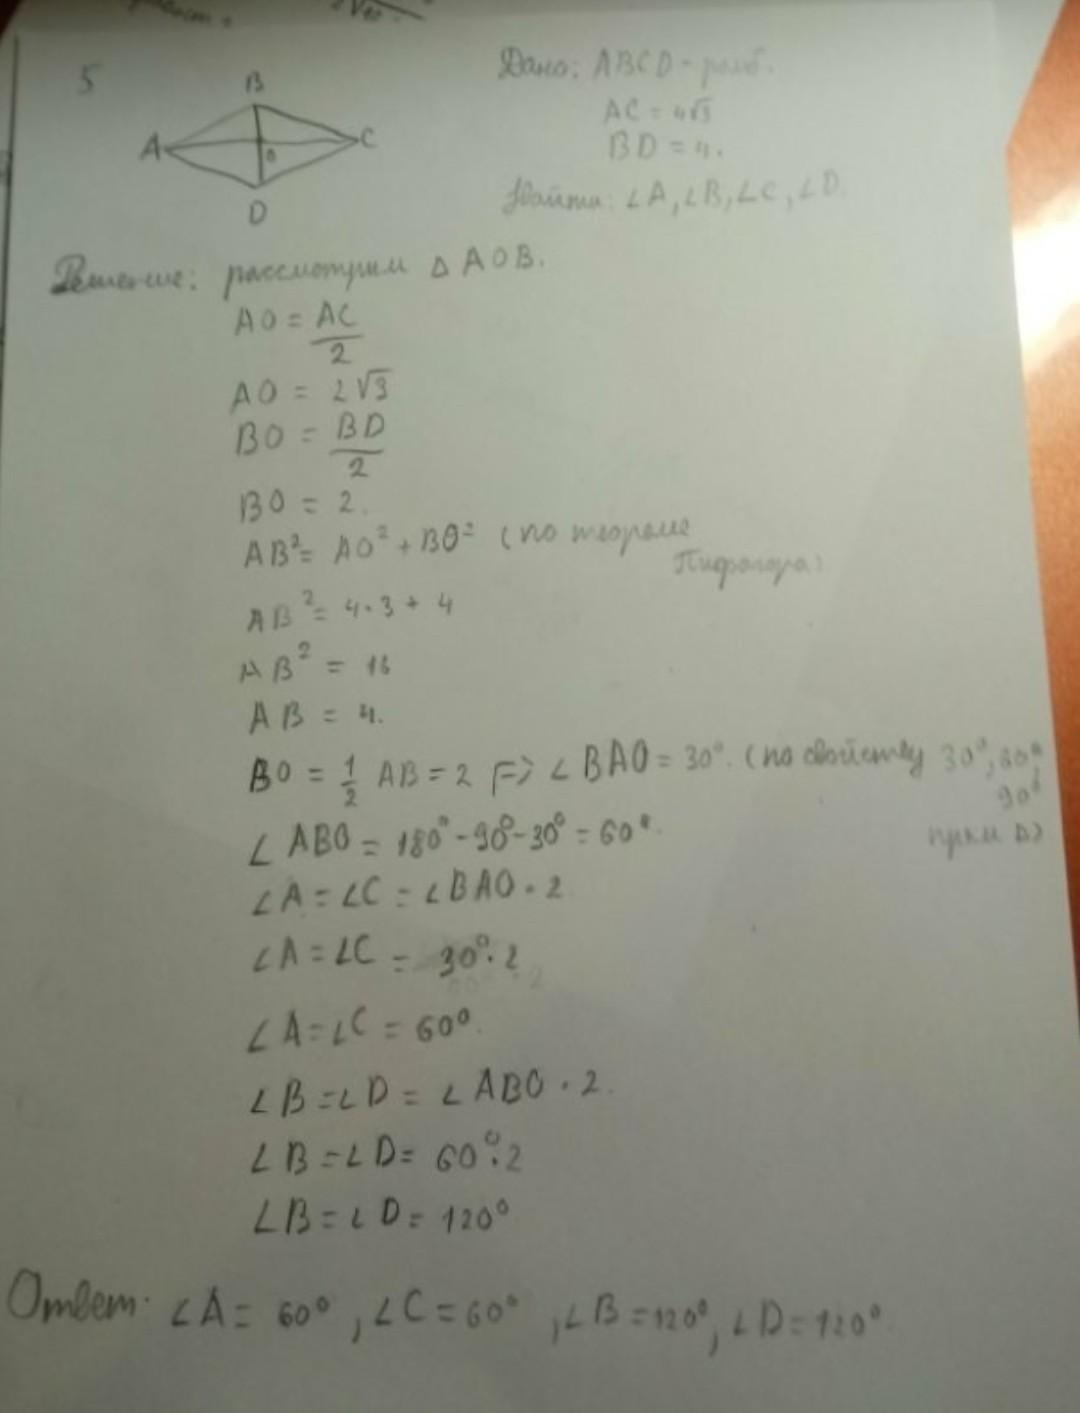 5
B
A
C
O
D
Дано: ABCD - ромб.
AC = 4√3
BD = 4.
Найти: ∠A, ∠B, ∠C, ∠D.
Решение: рассмотрим △ AOB.
AO = AC/2
AO = 2√3
BO = BD/2
BO = 2.
AB² = AO² + BO² (по теореме
Пифагора)
AB² = 4·3 + 4
AB² = 16
AB = 4.
BO = 1/2 AB = 2 => ∠BAO = 30°. (по свойству 30°, 60°
90°
прям △)
∠ABO = 180° - 90° - 30° = 60°.
∠A = ∠C = ∠BAO · 2
∠A = ∠C = 30° · 2
∠A = ∠C = 60°.
∠B = ∠D = ∠ABO · 2.
∠B = ∠D = 60° · 2
∠B = ∠D = 120°
Ответ: ∠A = 60°, ∠C = 60°, ∠B = 120°, ∠D = 120°